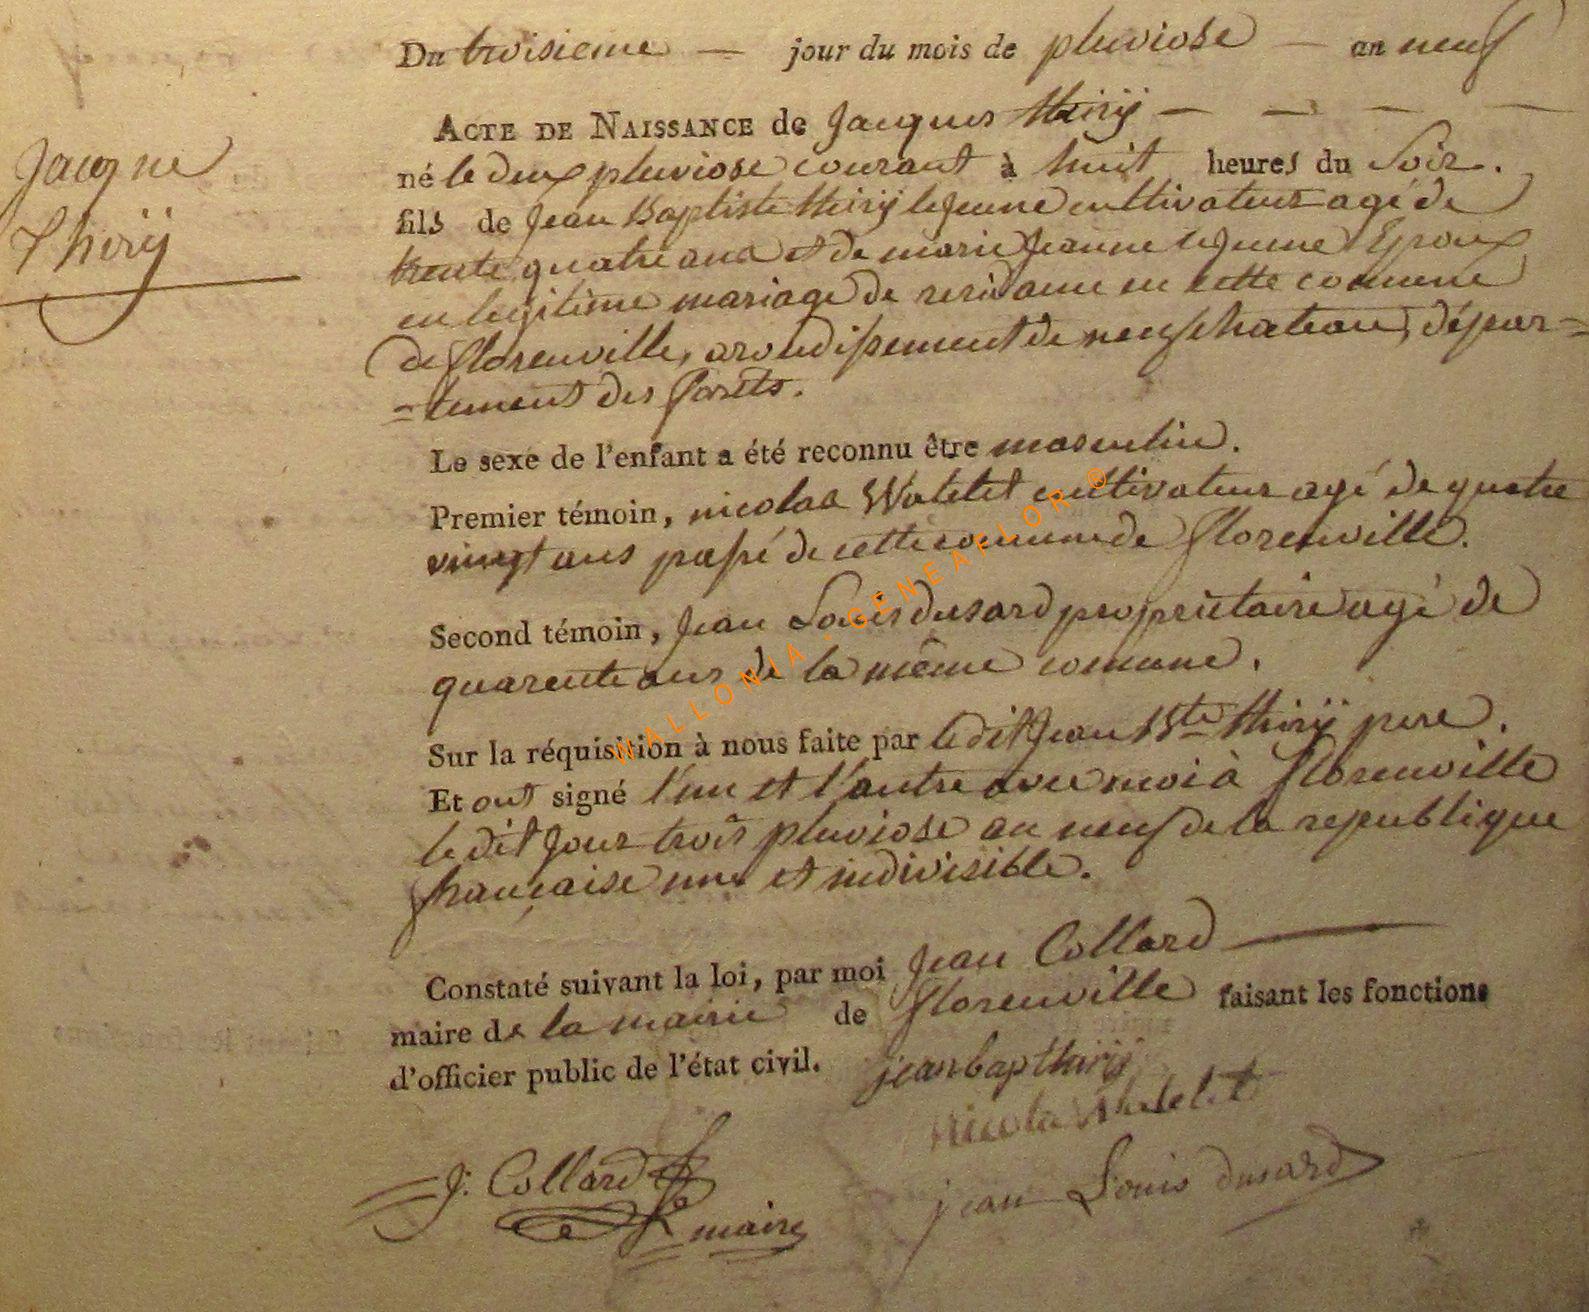 Du troisieme — jour du mois de pluviose — an neuf
Acte de Naissance de Jacques thirÿ — — — —
Jacque
Thirÿ
né le deux pluviose courant à huit heures du Soir.
fils de Jean Baptiste thirÿ le jeune cultivateur agé de
trente quatre ans et de marie Jeanne lejeune Epoux
en legitime mariage de residance en cette comune
de florenville, arondissement de neufchateau, dépar=
=tement des forêts.
Le sexe de l'enfant a été reconnu être masculin.
Premier témoin, nicolas Watelet cultivateur agé de quatre
vingt ans passé de cette comune de florenville.
Second témoin, Jean Louis dusard proprietaire agé de
quarente ans de la même comune.
WALLONIA . GENEAFLOR ©
Sur la réquisition à nous faite par ledit Jean Bte thirÿ pere.
Et ont signé l'un et l'autre avec moi à florenville
le dit Jour trois pluviose an neuf de la republique
française une et indivisible.
Constaté suivant la loi, par moi Jean Collard
maire de la mairie de florenville faisant les fonctions
d'officier public de l'état civil.
jean bap thirÿ
nicola Watelet
J. Collard
maire
jean Louis dusard